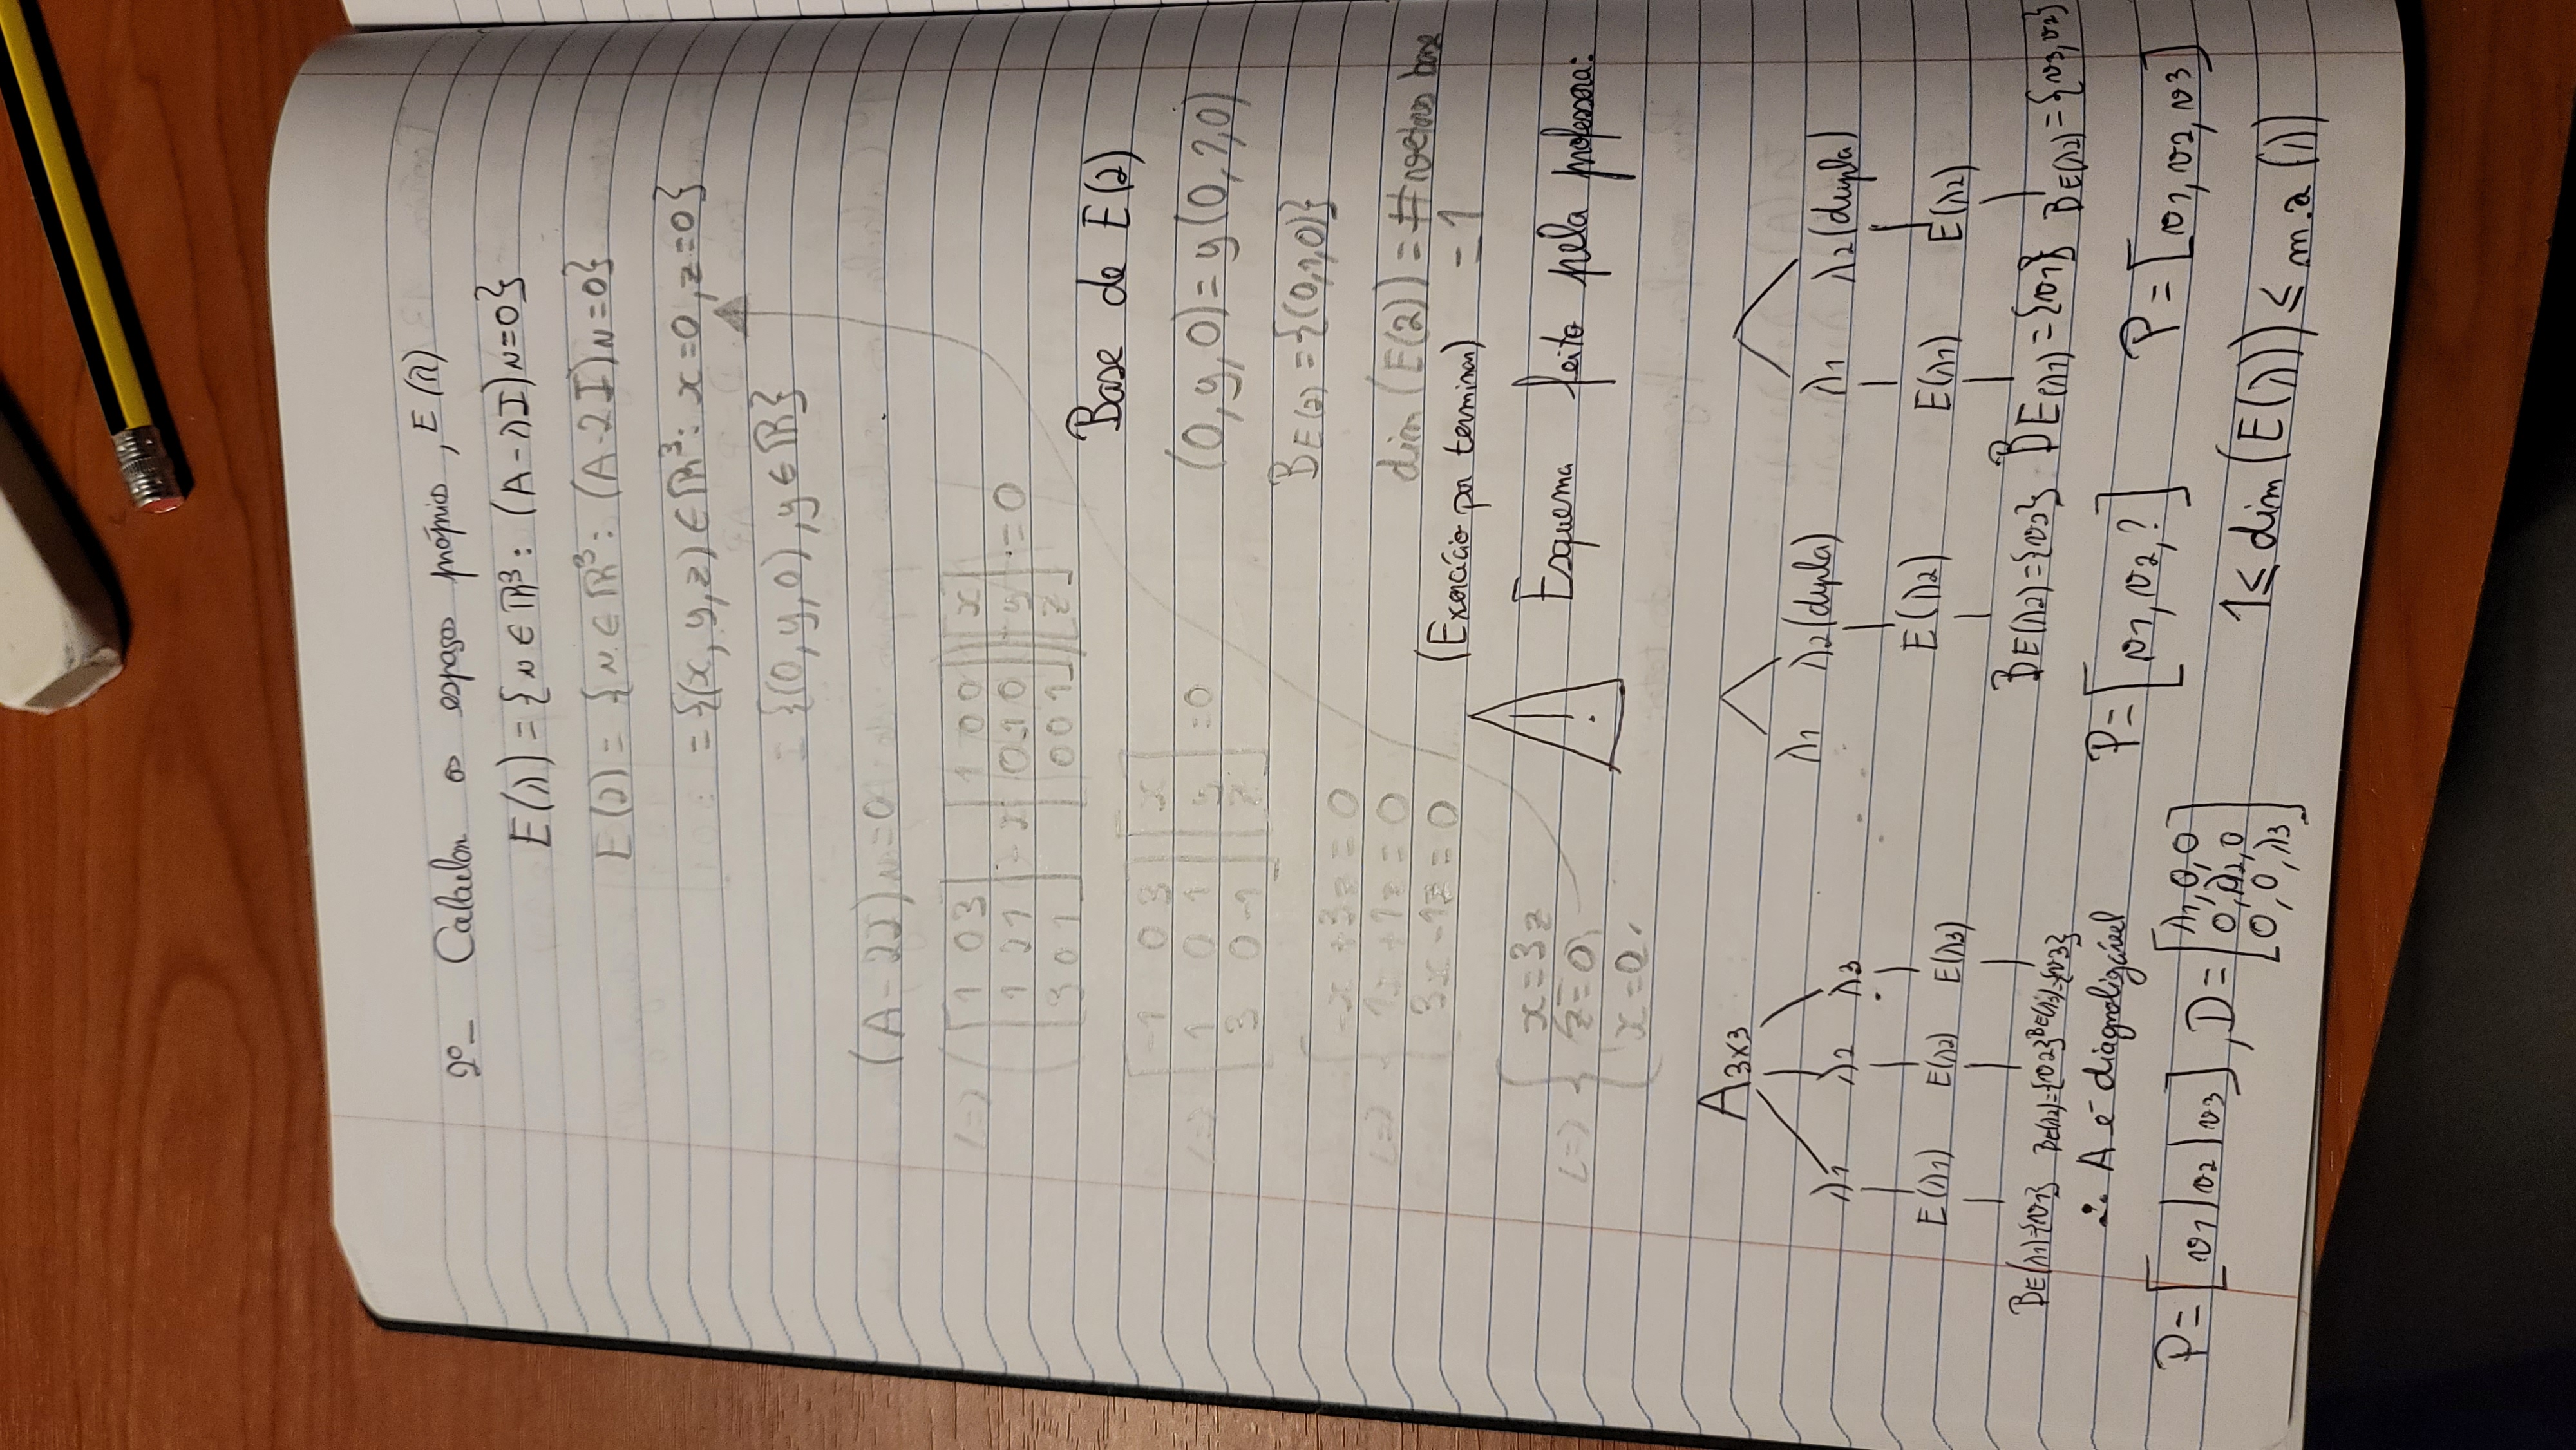 2º- Calcular os espaços próprios, E(λ)
E(λ) = {v ∈ ℝ³: (A-λI)v=0}
E(2) = {v ∈ ℝ³: (A-2I)v=0}
= {(x, y, z) ∈ ℝ³: x=0, z=0}
= {(0, y, 0), y ∈ ℝ}
(A-2I)v=0
(=) ([1 0 3
1 2 1
3 0 1] - 2 [1 0 0
0 1 0
0 0 1]) [x
y
z] = 0
(=) [-1 0 3
1 0 1
3 0 -1] [x
y
z] = 0
(=) { -x + 3z = 0
1x + 1z = 0
3x - 1z = 0
(=) { x = 3z
z = 0
x = 0
Base de E(2)
(0, y, 0) = y(0, 1, 0)
B E(2) = {(0,1,0)}
dim (E(2)) = # vetores base
= 1
(Exercício por terminar)
!
Esquema feito pela professora:
A 3x3
λ1 λ2 λ3
E(λ1) E(λ2) E(λ3)
BE(λ1)={v1} BE(λ2)={v2} BE(λ3)={v3}
∴ A é diagnolizável
P = [v1 | v2 | v3], D = [λ1, 0, 0
0, λ2, 0
0, 0, λ3]
λ1 λ2 (dupla)
E(λ2)
BE(λ2) = {v2}
P = [v1, v2, ?]
λ1 λ2 (dupla)
E(λ1) E(λ2)
BE(λ1) = {v1} BE(λ2) = {v3, v2}
P = [v1, v2, v3]
1 ≤ dim (E(λ)) ≤ m.a (λ)